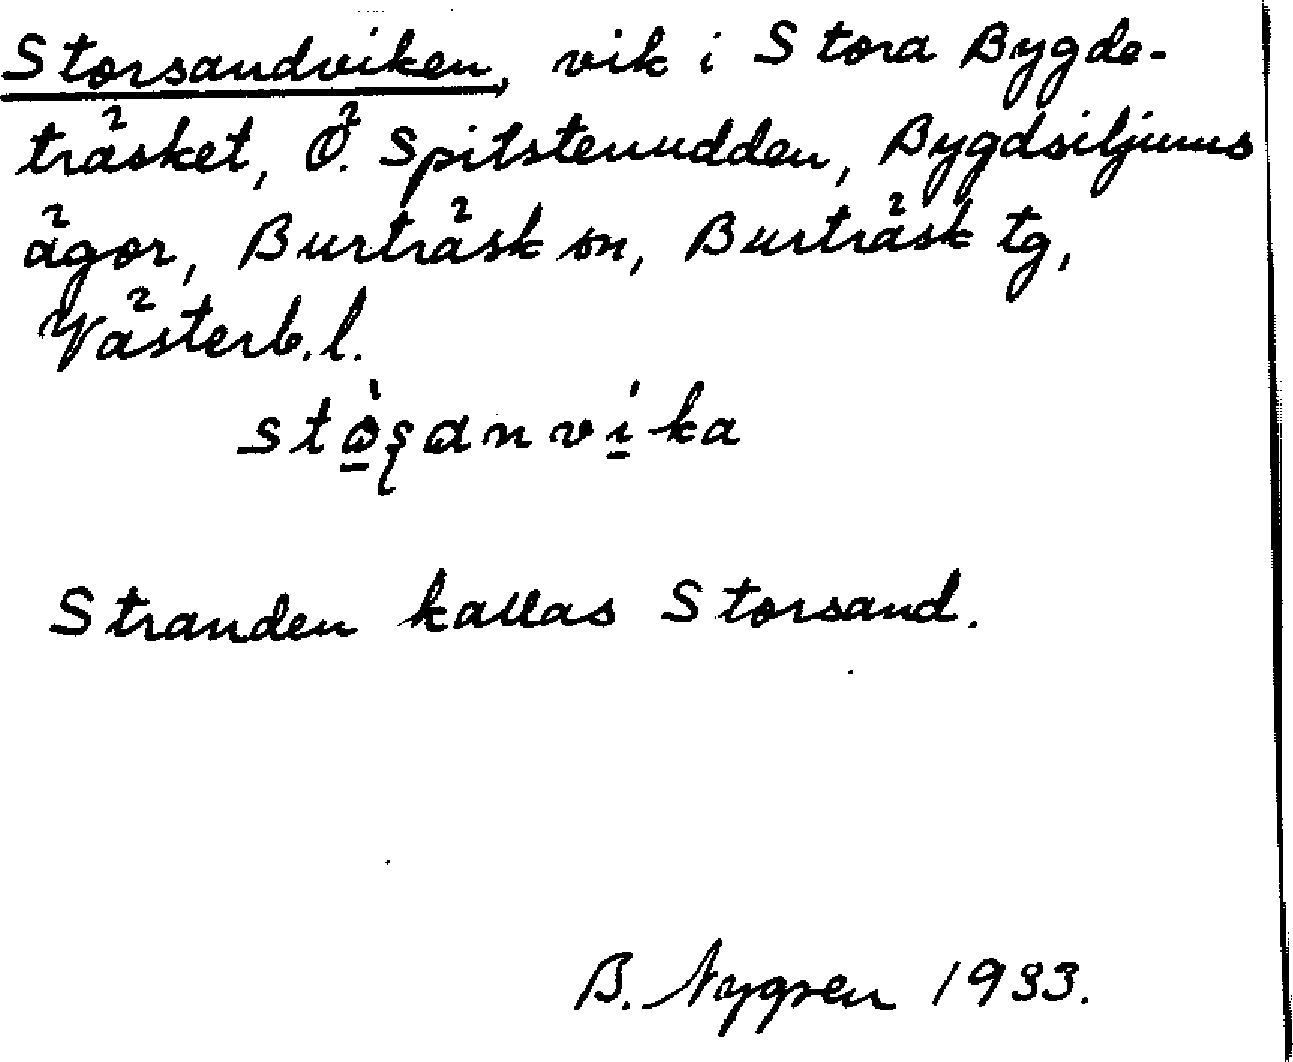 Storsandviken, vik i Stora Bygde-
träsket, Ö. Spitstenudden, Bygdsiljums
ägor, Burträsk sn, Burträsk tg,
Västerb. l.
stò̱ʂanví̱ka
Stranden kallas Storsand.
B. Nygren 1933.